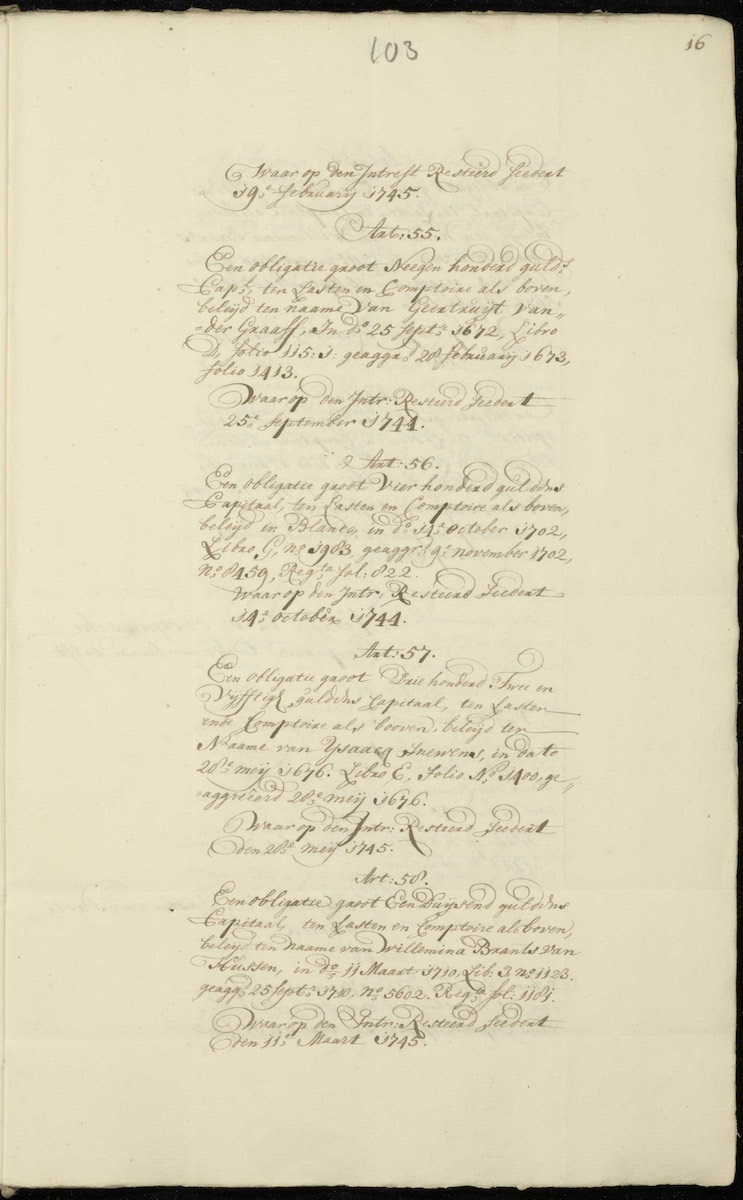 103
16
Waar op den Intrest Resteerd seedert
19:e februarij 1745.
Art: 55.
Een obligatie groot Neegen honderd guld:s
Cap:l, ten Lasten en Comptoire als boven,
beleijd ten naame van Geertruijt van„
„der Graaff, In d:o 25 Sept:r 1672, Libro
D, folio 115: 1: geaggr: 28 februarij 1673,
folio 1413.
Waarop den Intr: Resteerd seedert
25:e September 1744.
Art: 56.
Een obligatie groot Vier honderd guldens
Capitaal, ten Lasten en Comptoire als boven,
beleijd in Blanco, in d:o 14:e October 1702,
Libro G, n:o 1983, geaggr:d 9:e november 1702,
N:o 8459, Reg:ta fol: 822.
Waarop den Intr: Resteerd Seedert
14:e October 1744.
Art: 57.
Een obligatie groot Drie honderd Twee en
Vijfftigh guldens Capitaal, ten Laster
ende Comptoire als booven, beleijd ter
Naame van Ysaacq Snewens, in dato
28:e meij 1676. Libro E, folio N:o 1400, ge„
„aggreerd 28:e meij 1676.
Waarop den Intr: Resteerd seedert
den 28:e meij 1745.
Art: 58.
Een obligatie groot Een Duijsend guldens
Capitaal, ten Lasten en Comptoire als boven,
beleijd ten naame van Willemina Brants van
Hussen, in d:o 11 Maart 1710, Lib: J n:o 1123.
geagg:d 25 Sept:r 1710, N:o 5602. Reg:ta fol: 1181.
Waarop den Intr: Resteerd seedert
den 11:e Maart 1745.